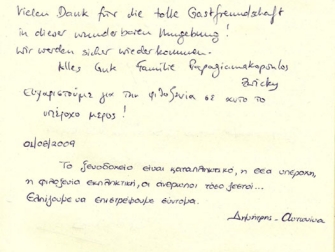 Vielen Dank für die tolle Gastfreundschaft
in dieser wunderbaren Umgebung!
Wir werden sicher wiederkommen.
Alles Gute Familie Papagiannakopoulos
Zwicky
Ευχαριστούμε για την φιλοξενία σε αυτο το
υπέροχο μέρος!
01/08/2009
Το ξενοδοχείο είναι καταπληκτικό, η θέα υπέροχη,
η φιλοξενία εκπληκτική, οι άνθρωποι τόσο ζεστοί...
Ελπίζουμε να επιστρέψουμε σύντομα.
Δημήτρης -